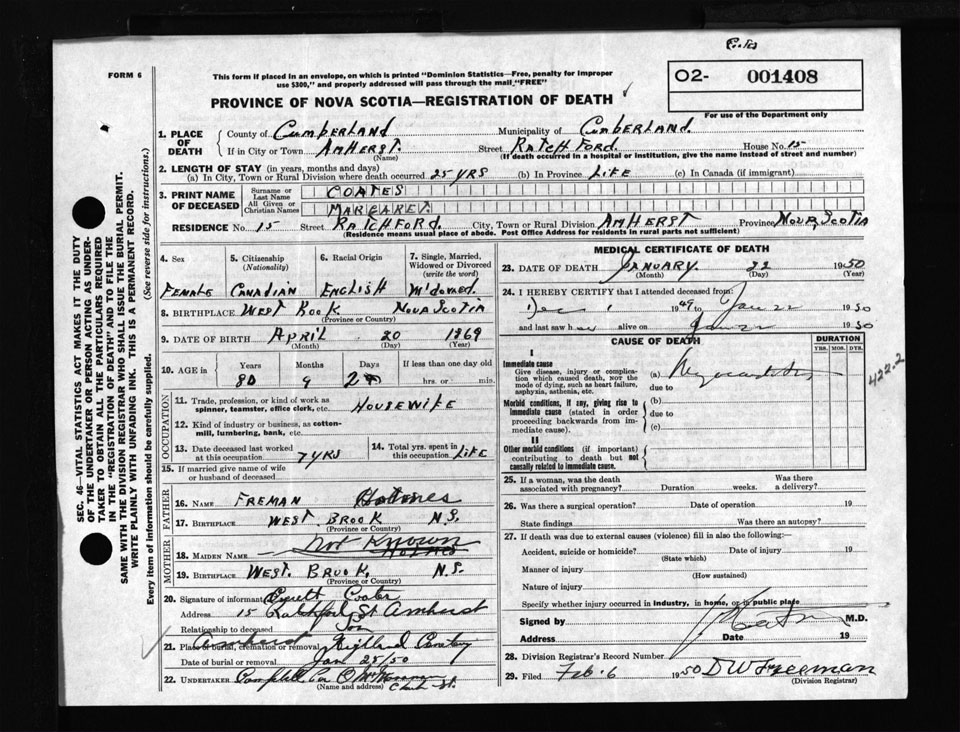 FORM 6
This form if placed in an envelope, on which is printed "Dominion Statistics—Free, penalty for improper
use $300," and properly addressed will pass through the mail "FREE"
O2- 001408
PROVINCE OF NOVA SCOTIA—REGISTRATION OF DEATH
For use of the Department only
1. PLACE OF DEATH
County of CUMBERLAND Municipality of CUMBERLAND.
If in City or Town AMHERST. Street RATCHFORD. House No. 15
(Name) (If death occurred in a hospital or institution, give the name instead of street and number)
2. LENGTH OF STAY (in years, months and days)
(a) In City, Town or Rural Division where death occurred 25 YRS (b) In Province LIFE (c) In Canada (if immigrant)
3. PRINT NAME OF DECEASED
Surname or Last Name COATES
All Given or Christian Names MARGARET.
RESIDENCE No. 15 Street RATCHFORD. City, Town or Rural Division AMHERST Province NOVA SCOTIA
(Residence means usual place of abode. Post Office Address for residents in rural parts not sufficient)
4. Sex
5. Citizenship (Nationality)
6. Racial Origin
7. Single, Married, Widowed or Divorced (write the word)
FEMALE CANADIAN ENGLISH
8. BIRTHPLACE WEST NOVA SCOTIA
(Province or Country)
9. DATE OF BIRTH APRIL 20 1869
(Month) (Day) (Year)
10. AGE in Years Months Days If less than one day old
80 9 hrs. or min.
OCCUPATION
11. Trade, profession, or kind of work as spinner, teamster, office clerk, etc. HOUSEWIFE
12. Kind of industry or business, as cotton-mill, lumbering, bank, etc.
13. Date deceased last worked at this occupation 7 YRS
14. Total yrs. spent in this occupation LIFE
15. If married give name of wife or husband of deceased
FATHER
16. NAME FREMAN Holmes
17. BIRTHPLACE WEST BROOK N.S.
(Province or Country)
MOTHER
18. MAIDEN NAME Not Known
19. BIRTHPLACE WEST. BROOK. N.S.
(Province or Country)
20. Signature of informant Everett Coates
Address 15 Ratchford St Amherst
Relationship to deceased Son
21. Place of burial, cremation or removal Amherst Highland Cemetery
Date of burial or removal Jan 25/50
22. UNDERTAKER Campbell
(Name and address)
MEDICAL CERTIFICATE OF DEATH
23. DATE OF DEATH JANUARY. 22 1950
(Month) (Day) (Year)
24. I HEREBY CERTIFY that I attended deceased from:
Dec 1 1949 to Jan 22 1950
and last saw her alive on Jan 22 1950
CAUSE OF DEATH
DURATION
YRS. MOS. DYS.
I
Immediate cause
Give disease, injury or complication which caused death, not the mode of dying, such as heart failure, asphyxia, asthenia, etc.
(a)
due to
Morbid conditions, if any, giving rise to immediate cause (stated in order proceeding backwards from immediate cause).
(b)
due to
(c)
422.2
II
Other morbid conditions (if important) contributing to death but not causally related to immediate cause.
25. If a woman, was the death associated with pregnancy? Duration weeks. Was there a delivery?
26. Was there a surgical operation? Date of operation 19
State findings Was there an autopsy?
27. If death was due to external causes (violence) fill in also the following:—
Accident, suicide or homicide? Date of injury 19
(State which)
Manner of injury
(How sustained)
Nature of injury
Specify whether injury occurred in industry, in home, or in public place
Signed by M.D.
Address Date 19
28. Division Registrar's Record Number
29. Filed Feb. 6 1950 D W Freeman
(Division Registrar)
SEC. 46—VITAL STATISTICS ACT MAKES IT THE DUTY
OF THE UNDERTAKER OR PERSON ACTING AS UNDER-
TAKER TO OBTAIN ALL THE PARTICULARS REQUIRED
IN THE "REGISTRATION OF DEATH" AND TO FILE THE
SAME WITH THE DIVISION REGISTRAR WHO SHALL ISSUE THE BURIAL PERMIT.
WRITE PLAINLY WITH UNFADING INK. THIS IS A PERMANENT RECORD.
Every item of information should be carefully supplied. (See reverse side for instructions.)